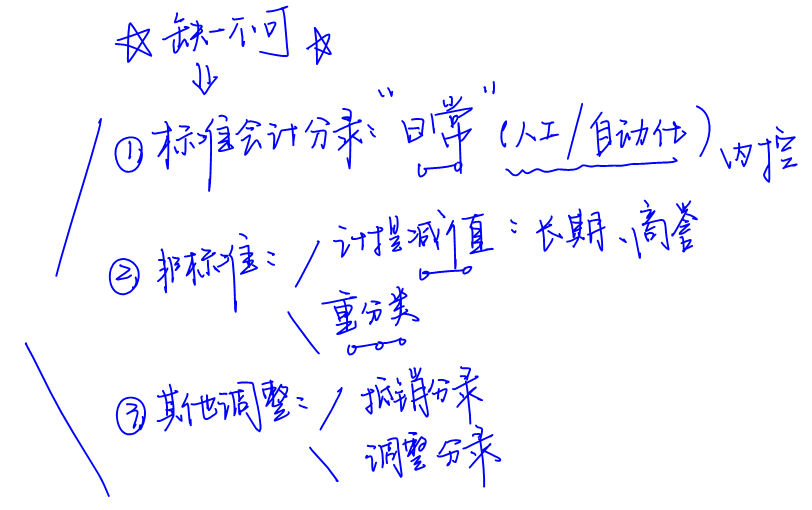 ☆ 缺一不可 ☆
↓
① 标准会计分录："日常"(人工/自动化)内控
② 非标准：/ 计提减值：长期、商誉
\ 重分类
③ 其他调整：/ 抵销分录
\ 调整分录